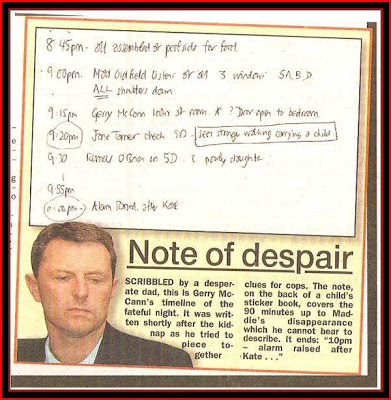 8:45pm. all assembled at poolside for food
9:00pm. Matt Oldfield listens at all 3 windows 5A,B,D
ALL shutters down
9:15pm Gerry McCann looks at room A ? Door open to bedroom
9:20pm Jane Tanner checks 5D - sees stranger walking carrying a child
9:30 Russell O'Brien in 5D. poorly daughter
9:55pm
10:00pm Alarm raised after Kate
Note of despair
SCRIBBLED by a desper-
ate dad, this is Gerry Mc-
Cann's timeline of the
fateful night. It was writ-
ten shortly after the kid-
nap as he tried to
piece to-
gether
clues for cops. The note,
on the back of a child's
sticker book, covers the
90 minutes up to Mad-
die's disappearance
which he cannot bear to
describe. It ends: "10pm
– alarm raised after
Kate . . ."